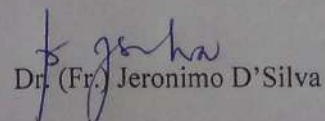 Dr. (Fr.) Jeronimo D'Silva